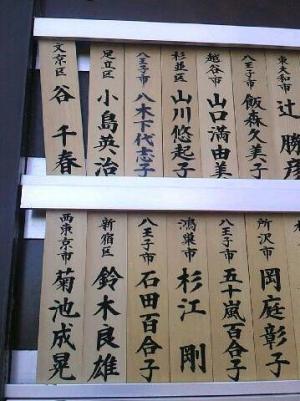 東大和市 辻 勝彦
八王子市 飯森久美子
越谷市 山口満由美
杉並区 山川悠起子
八王子市 八木下代志子
足立区 小島英治
文京区 谷 千春
所沢市 岡庭彰子
八王子市 五十嵐百合子
鴻巣市 杉江 剛
八王子市 石田百合子
新宿区 鈴木良雄
西東京市 菊池成晃